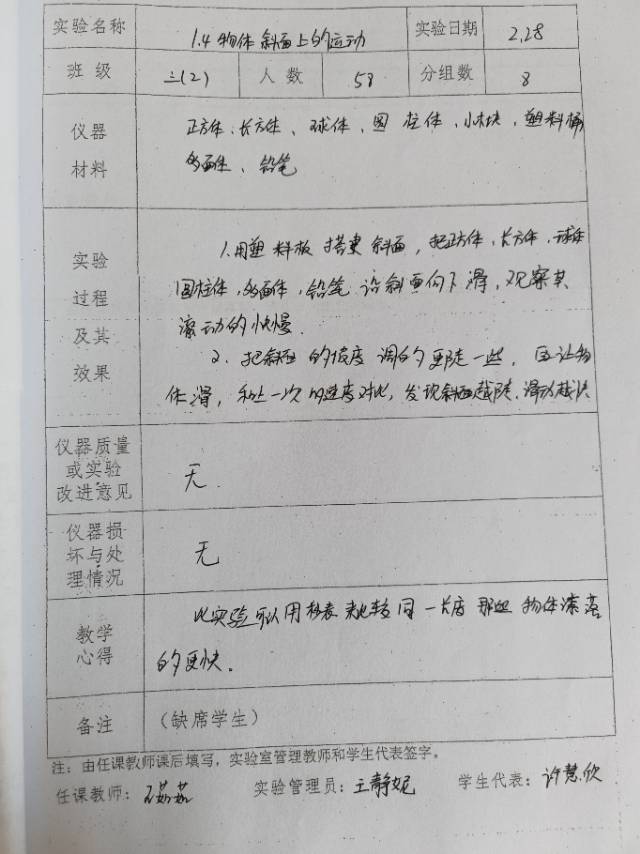 实验名称 1.4物体斜面上的运动 实验日期 2.28
班级 三(2) 人数 58 分组数 8
仪器材料
正方体、长方体、球体、圆柱体、小木块、塑料板
多面体、铅笔
实验过程及其效果
1.用塑料板搭建斜面,把正方体、长方体、球体
圆柱体、多面体、铅笔沿斜面向下滑,观察其
滚动的快慢.
2、把斜面的坡度调的更陡一些,再让物
体滑,和上一次的速度对比,发现斜面越陡,滑动越快
仪器质量或实验改进意见
无.
仪器损坏与处理情况
无
教学心得
此实验可以用秒表来比较同一长度那些物体滚落
的更快.
备注 (缺席学生)
注:由任课教师课后填写,实验室管理教师和学生代表签字。
任课教师: 石茹茹 实验管理员: 王静妮 学生代表: 许慧欣